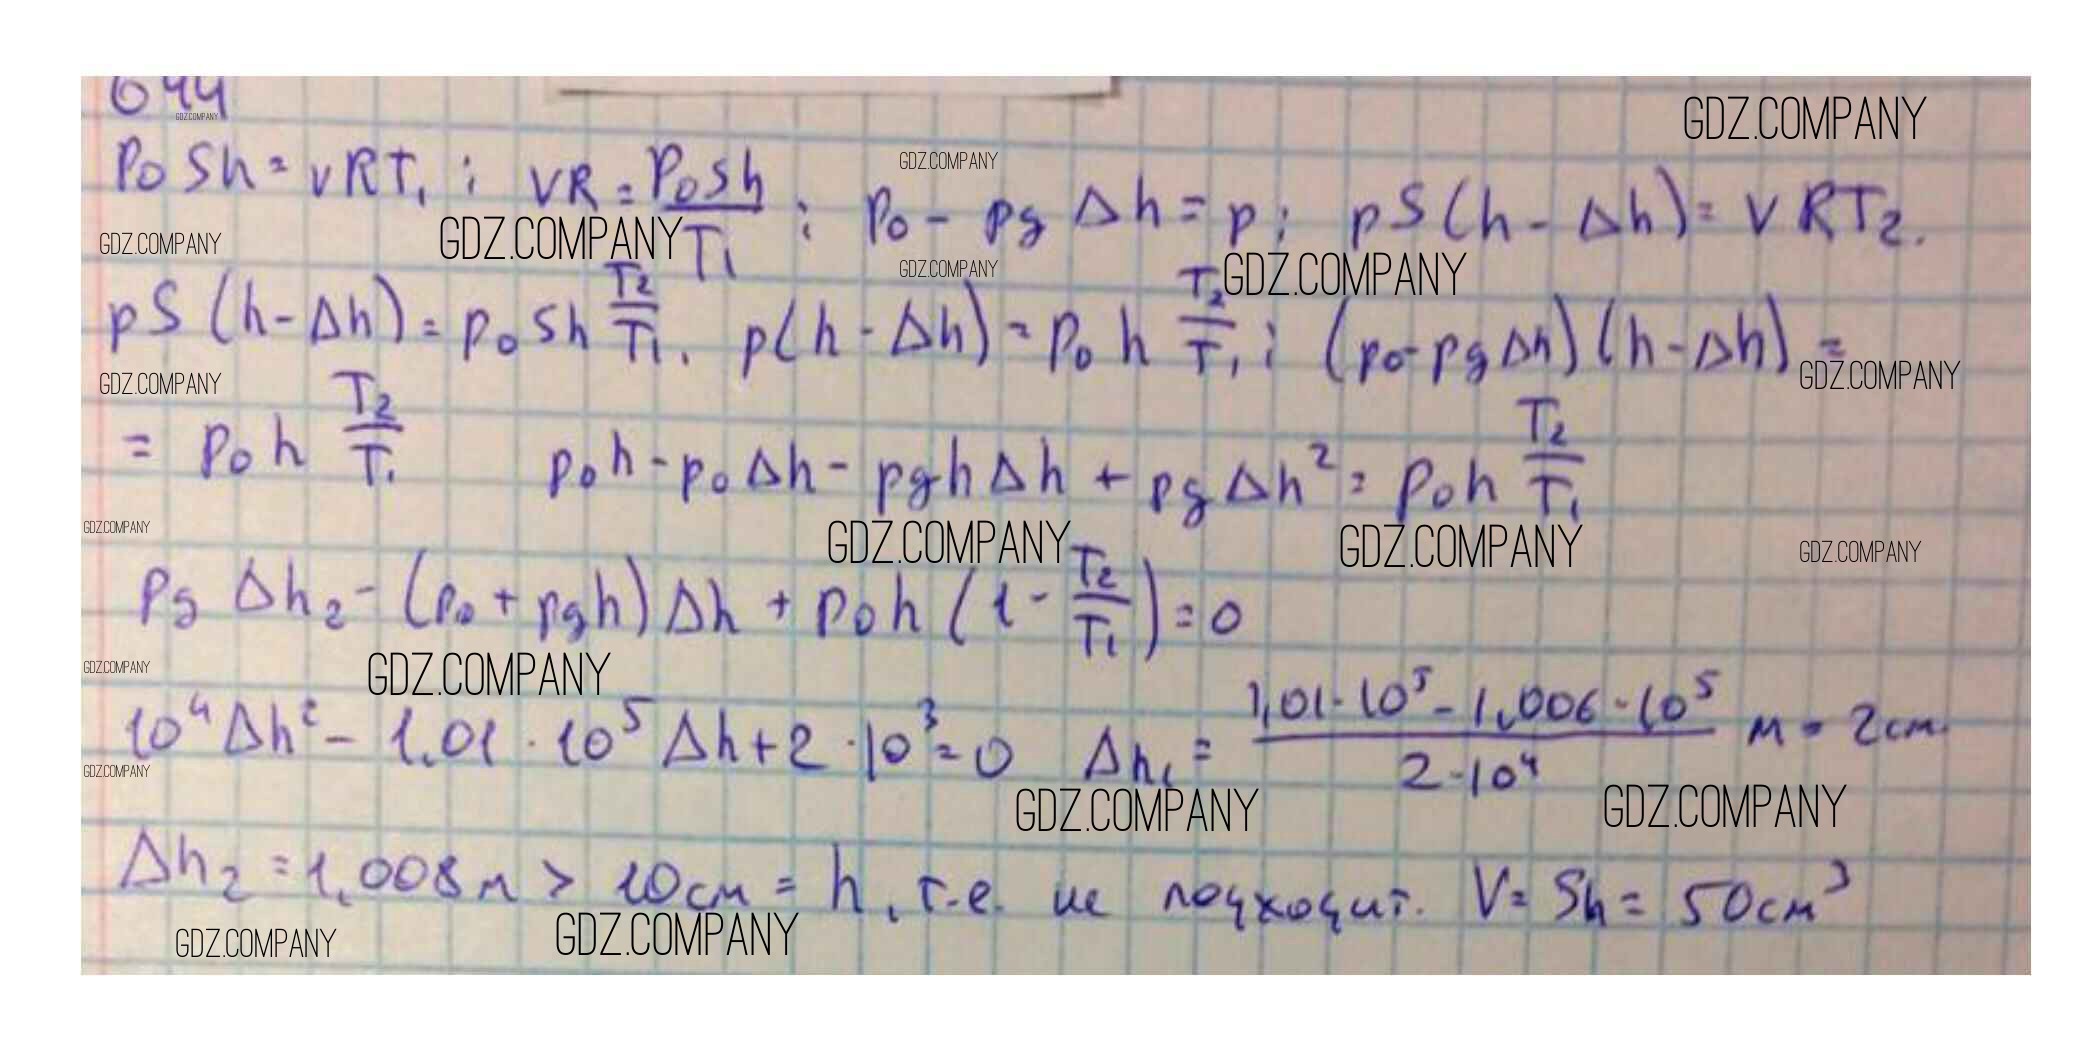 644
GDZ.COMPANY
GDZ.COMPANY
P₀Sh = νRT₁ ; νR = P₀Sh/T₁ ; p₀ - ρg Δh = p ; pS(h - Δh) = νRT₂.
GDZ.COMPANY
GDZ.COMPANY
GDZ.COMPANY
GDZ.COMPANY
GDZ.COMPANY
pS(h - Δh) = p₀Sh T₂/T₁. p(h - Δh) = p₀h T₂/T₁ ; (p₀ - ρgΔh)(h - Δh) =
GDZ.COMPANY
GDZ.COMPANY
= p₀h T₂/T₁ p₀h - p₀Δh - ρghΔh + ρgΔh² = p₀h T₂/T₁
GDZ.COMPANY
GDZ.COMPANY
GDZ.COMPANY
GDZ.COMPANY
ρg Δh₂ - (p₀ + ρgh)Δh + p₀h(1 - T₂/T₁) = 0
GDZ.COMPANY
GDZ.COMPANY
10⁴Δh² - 1,01 · 10⁵Δh + 2 · 10³ = 0 Δh₁ = (1,01·10⁵ - 1,006·10⁵)/(2·10⁴) м = 2см.
GDZ.COMPANY
GDZ.COMPANY
GDZ.COMPANY
Δh₂ = 1,008м > 10см = h, т.е. не подходит. V = Sh = 50см³
GDZ.COMPANY
GDZ.COMPANY